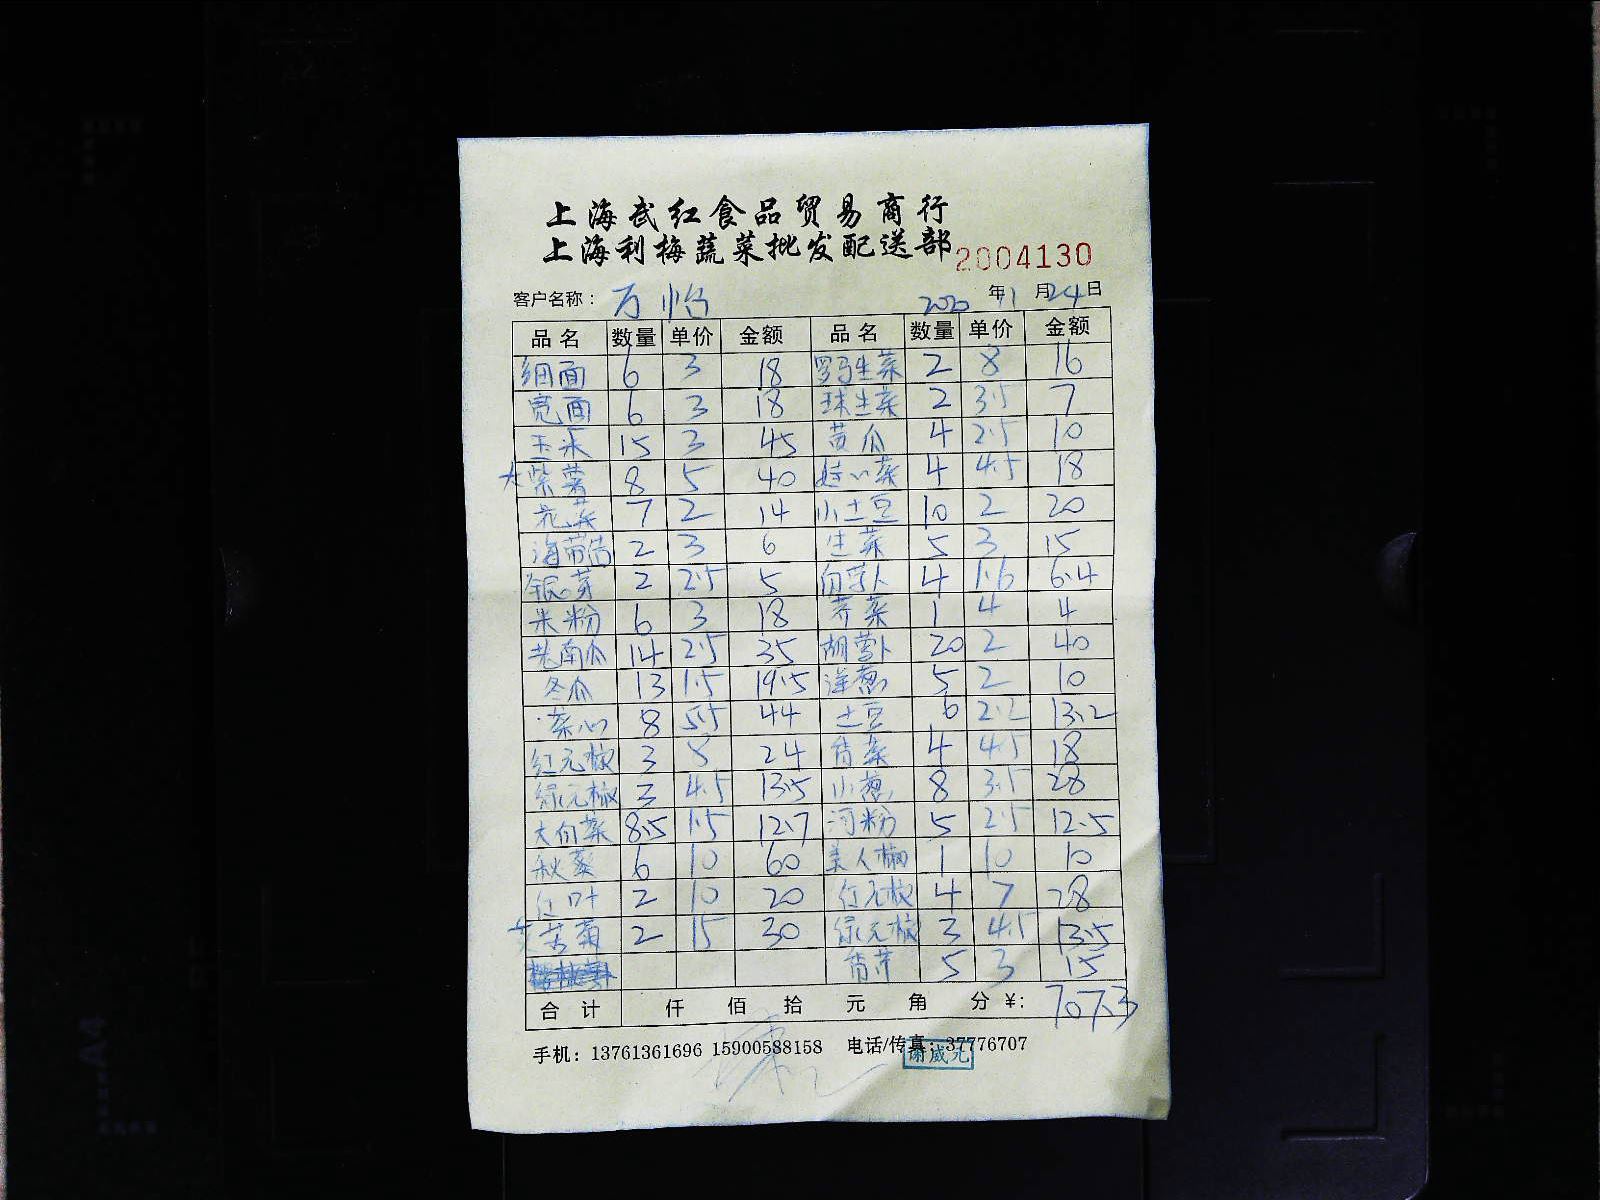 上海武红食品贸易商行
上海利梅蔬菜批发配送部 2004130
客户名称： 万怡 2020 年 11 月 24 日
品名 数量 单价 金额 品名 数量 单价 金额
细面 6 3 18 罗马生菜 2 8 16
宽面 6 3 18 球生菜 2 3.5 7
玉米 15 3 45 黄瓜 4 2.5 10
大紫薯 8 5 40 娃心菜 4 4.5 18
花菜 7 2 14 小土豆 10 2 20
海带结 2 3 6 生菜 5 3 15
银芽 2 2.5 5 白萝卜 4 1.6 6.4
米粉 6 3 18 芥菜 1 4 4
老南瓜 14 2.5 35 胡萝卜 20 2 40
冬瓜 13 1.5 19.5 洋葱 5 2 10
菜心 8 5.5 44 土豆 6 2.2 13.2
红元椒 3 8 24 青菜 4 4.5 18
绿元椒 3 4.5 13.5 小葱 8 3.5 28
大白菜 8.5 1.5 12.7 河粉 5 2.5 12.5
秋葵 6 10 60 美人椒 1 10 10
红叶 2 10 20 红元椒 4 7 28
苦菊 2 15 30 绿元椒 3 4.5 13.5
青芹 5 3 15
合计 仟 佰 拾 元 角 分 ¥: 707.3
手机：13761361696 15900588158 电话/传真：37776707
谢威元